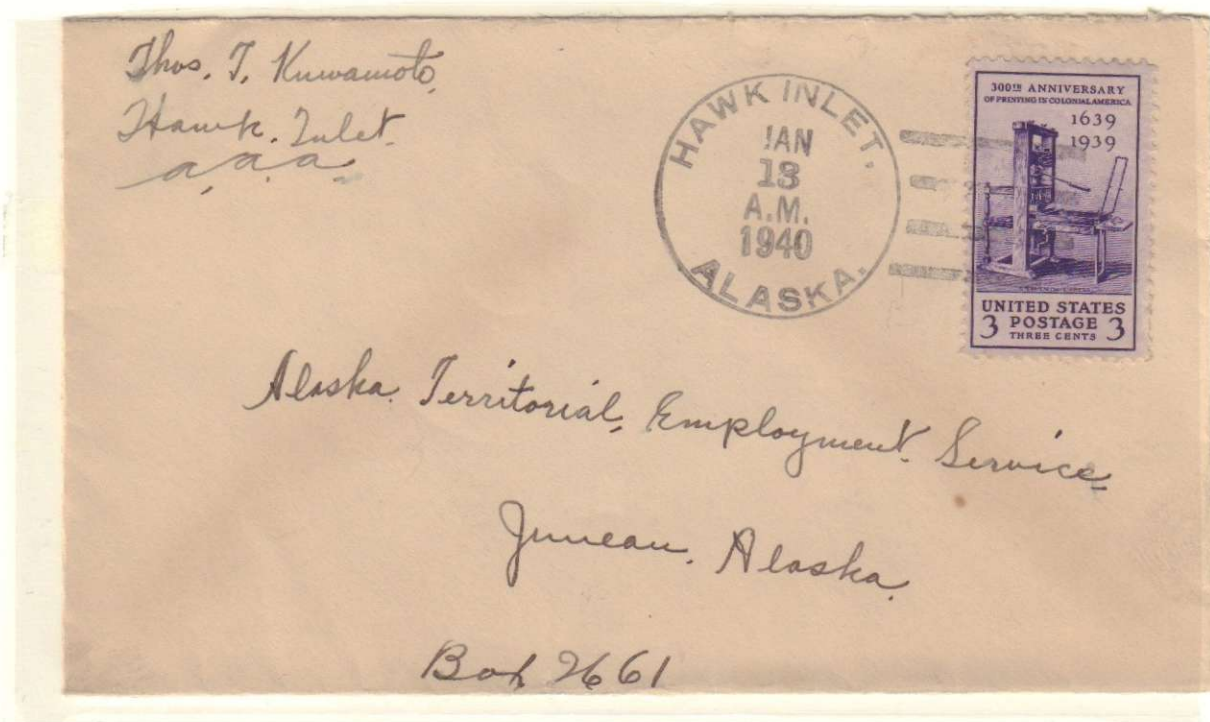 Thos. T. Kuwamoto,
Hawk. Inlet.
a, a. a.
HAWK INLET,
JAN
13
A.M.
1940
ALASKA.
300TH ANNIVERSARY
OF PRINTING IN COLONIAL AMERICA
1639
1939
UNITED STATES
3 POSTAGE 3
THREE CENTS
Alaska. Territorial, Employment. Service,
Juneau. Alaska.
Box 2661